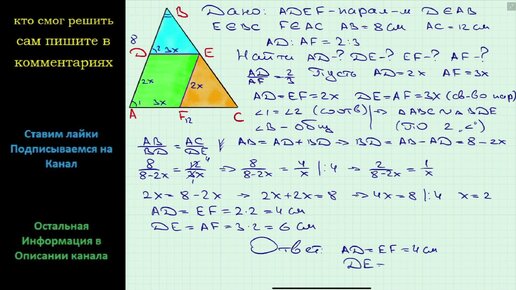 кто смог решить
сам пишите в
комментариях
Ставим лайки
Подписываемся на
Канал
Остальная
Информация в
Описании канала
B
8
D 2 3x E
2x 2x
A 1 3x F 12 C
Дано: ADEF-парал-м D∈AB
E∈BC F∈AC AB=8см AC=12см
AD:AF=2:3
Найти AD-? DE-? EF-? AF-?
AD/AF=2/3 Пусть AD=2x AF=3x
AD=EF=2x DE=AF=3x (св-во пар)
∠1=∠2 (соотв) ⇒ ΔABC∼ΔBDE
∠B-общ (по 2 ∠)
AB/BD=AC/DE AB=AD+BD ⇒ BD=AB-AD=8-2x
8/8-2x=12/3x ⇒ 8/8-2x=4/x |:4 ⇒ 2/8-2x=1/x
2x=8-2x ⇒ 2x+2x=8 ⇒ 4x=8|:4 x=2
AD=EF=2·2=4см
DE=AF=3·2=6см
Ответ: AD=EF=4см
DE=